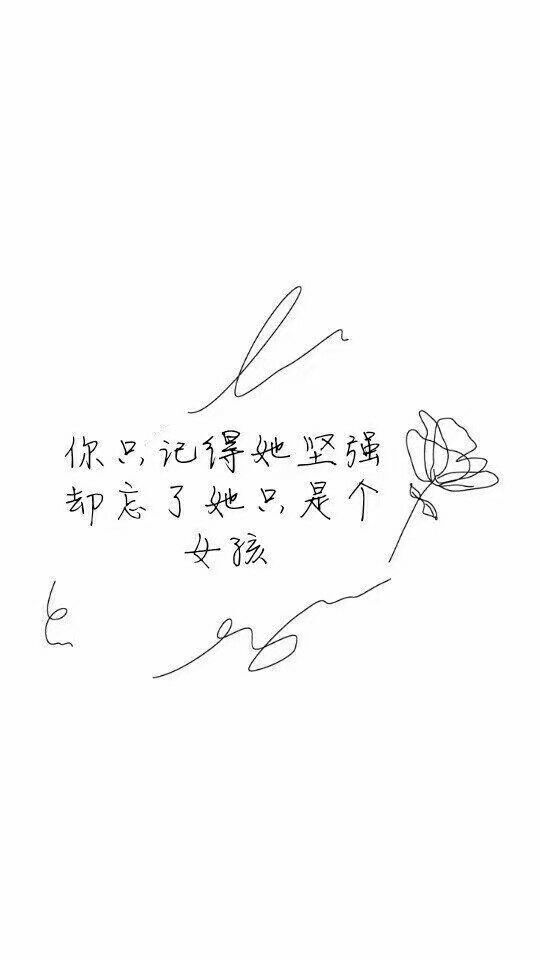 你只记得她坚强
却忘了她只是个
女孩